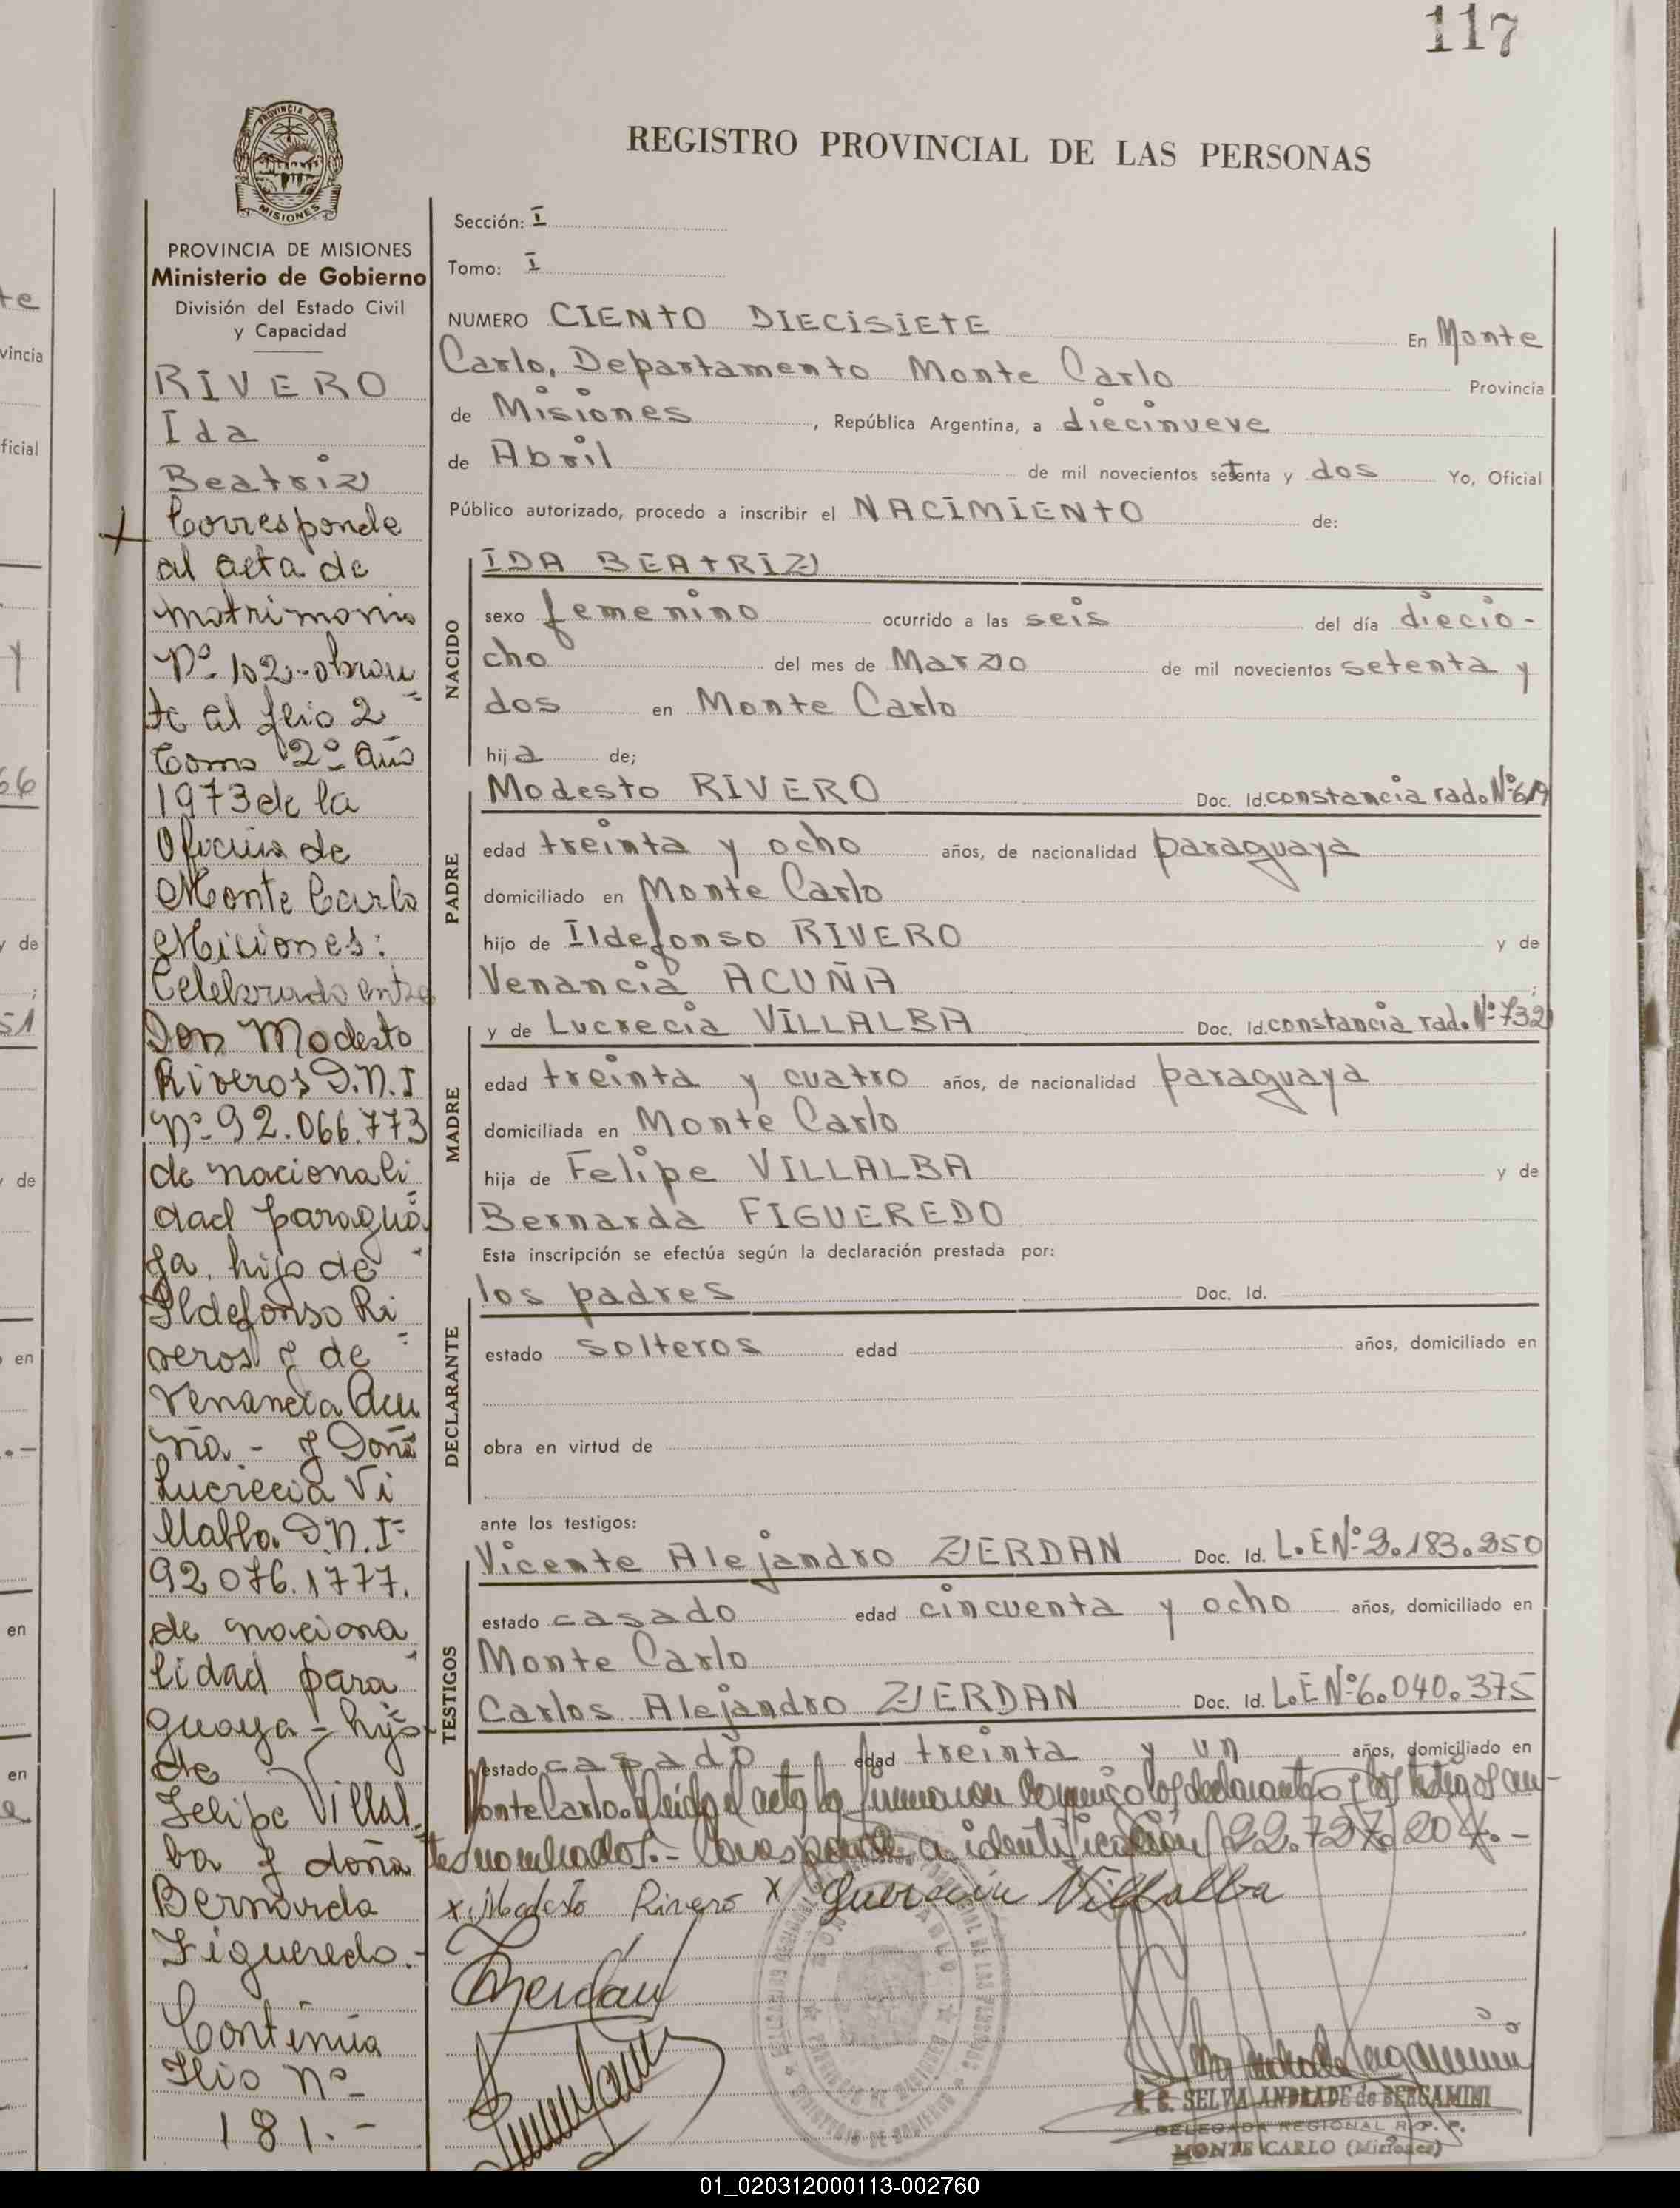 117
PROVINCIA DE
MISIONES
REGISTRO PROVINCIAL DE LAS PERSONAS
PROVINCIA DE MISIONES
Ministerio de Gobierno
División del Estado Civil
y Capacidad
RIVERO
Ida
Beatriz
Corresponde
al acta de
matrimonio
Nº 102-obran
te al flio 2
tomo 2º año
1973 de la
Oficina de
Monte Carlo
Miciones:
Celebrado entre
Don Modesto
Riveros D.N.I
Nº 92.066.773
de nacionali
dad paragua
ya, hijo de
Ildefonso Ri
veros y de
Venancia Acu
ña - y Doña
Lucrecia Vi
llalba D.N.I
92 076.1777.
de naciona
lidad para
guaya - hija
de
Felipe Villal
ba y doña
Bernarda
Figueredo.-
Continúa
flio nº
181.-
Sección: I
Tomo: I
NUMERO CIENTO DIECISIETE En Monte
Carlo, Departamento Monte Carlo Provincia
de Misiones, República Argentina, a diecinueve
de Abril de mil novecientos setenta y dos Yo, Oficial
Público autorizado, procedo a inscribir el NACIMIENTO de:
NACIDO
IDA BEATRIZ
sexo femenino ocurrido a las seis del día diecio-
cho del mes de Marzo de mil novecientos setenta y
dos en Monte Carlo
hija de;
PADRE
Modesto RIVERO Doc. Id. constancia rad. Nº 619
edad treinta y ocho años, de nacionalidad paraguaya
domiciliado en Monte Carlo
hijo de Ildefonso RIVERO y de
Venancia ACUÑA ;
MADRE
y de Lucrecia VILLALBA Doc. Id. constancia rad. Nº 732
edad treinta y cuatro años, de nacionalidad paraguaya
domiciliada en Monte Carlo
hija de Felipe VILLALBA y de
Bernarda FIGUEREDO
Esta inscripción se efectúa según la declaración prestada por:
DECLARANTE
los padres Doc. Id.
estado solteros edad años, domiciliado en
obra en virtud de
ante los testigos:
TESTIGOS
Vicente Alejandro ZIERDAN Doc. Id. L.E Nº 3.183.350
estado casado edad cincuenta y ocho años, domiciliado en
Monte Carlo
Carlos Alejandro ZIERDAN Doc. Id. L.E Nº 6.040.375
estado casado edad treinta y un años, domiciliado en
Monte Carlo. Leída el acta la firmaron conmigo los declarantes y los testigos an-
tes nombrados.- Corresponde a identificación 22.727.204.-
x Modesto Rivero x Lucrecia Villalba
Zierdan
S. E. SELVA ANDRADE de BERGAMINI
DELEGADA REGIONAL R. P. P.
MONTE CARLO (Misiones)
01_020312000113-002760